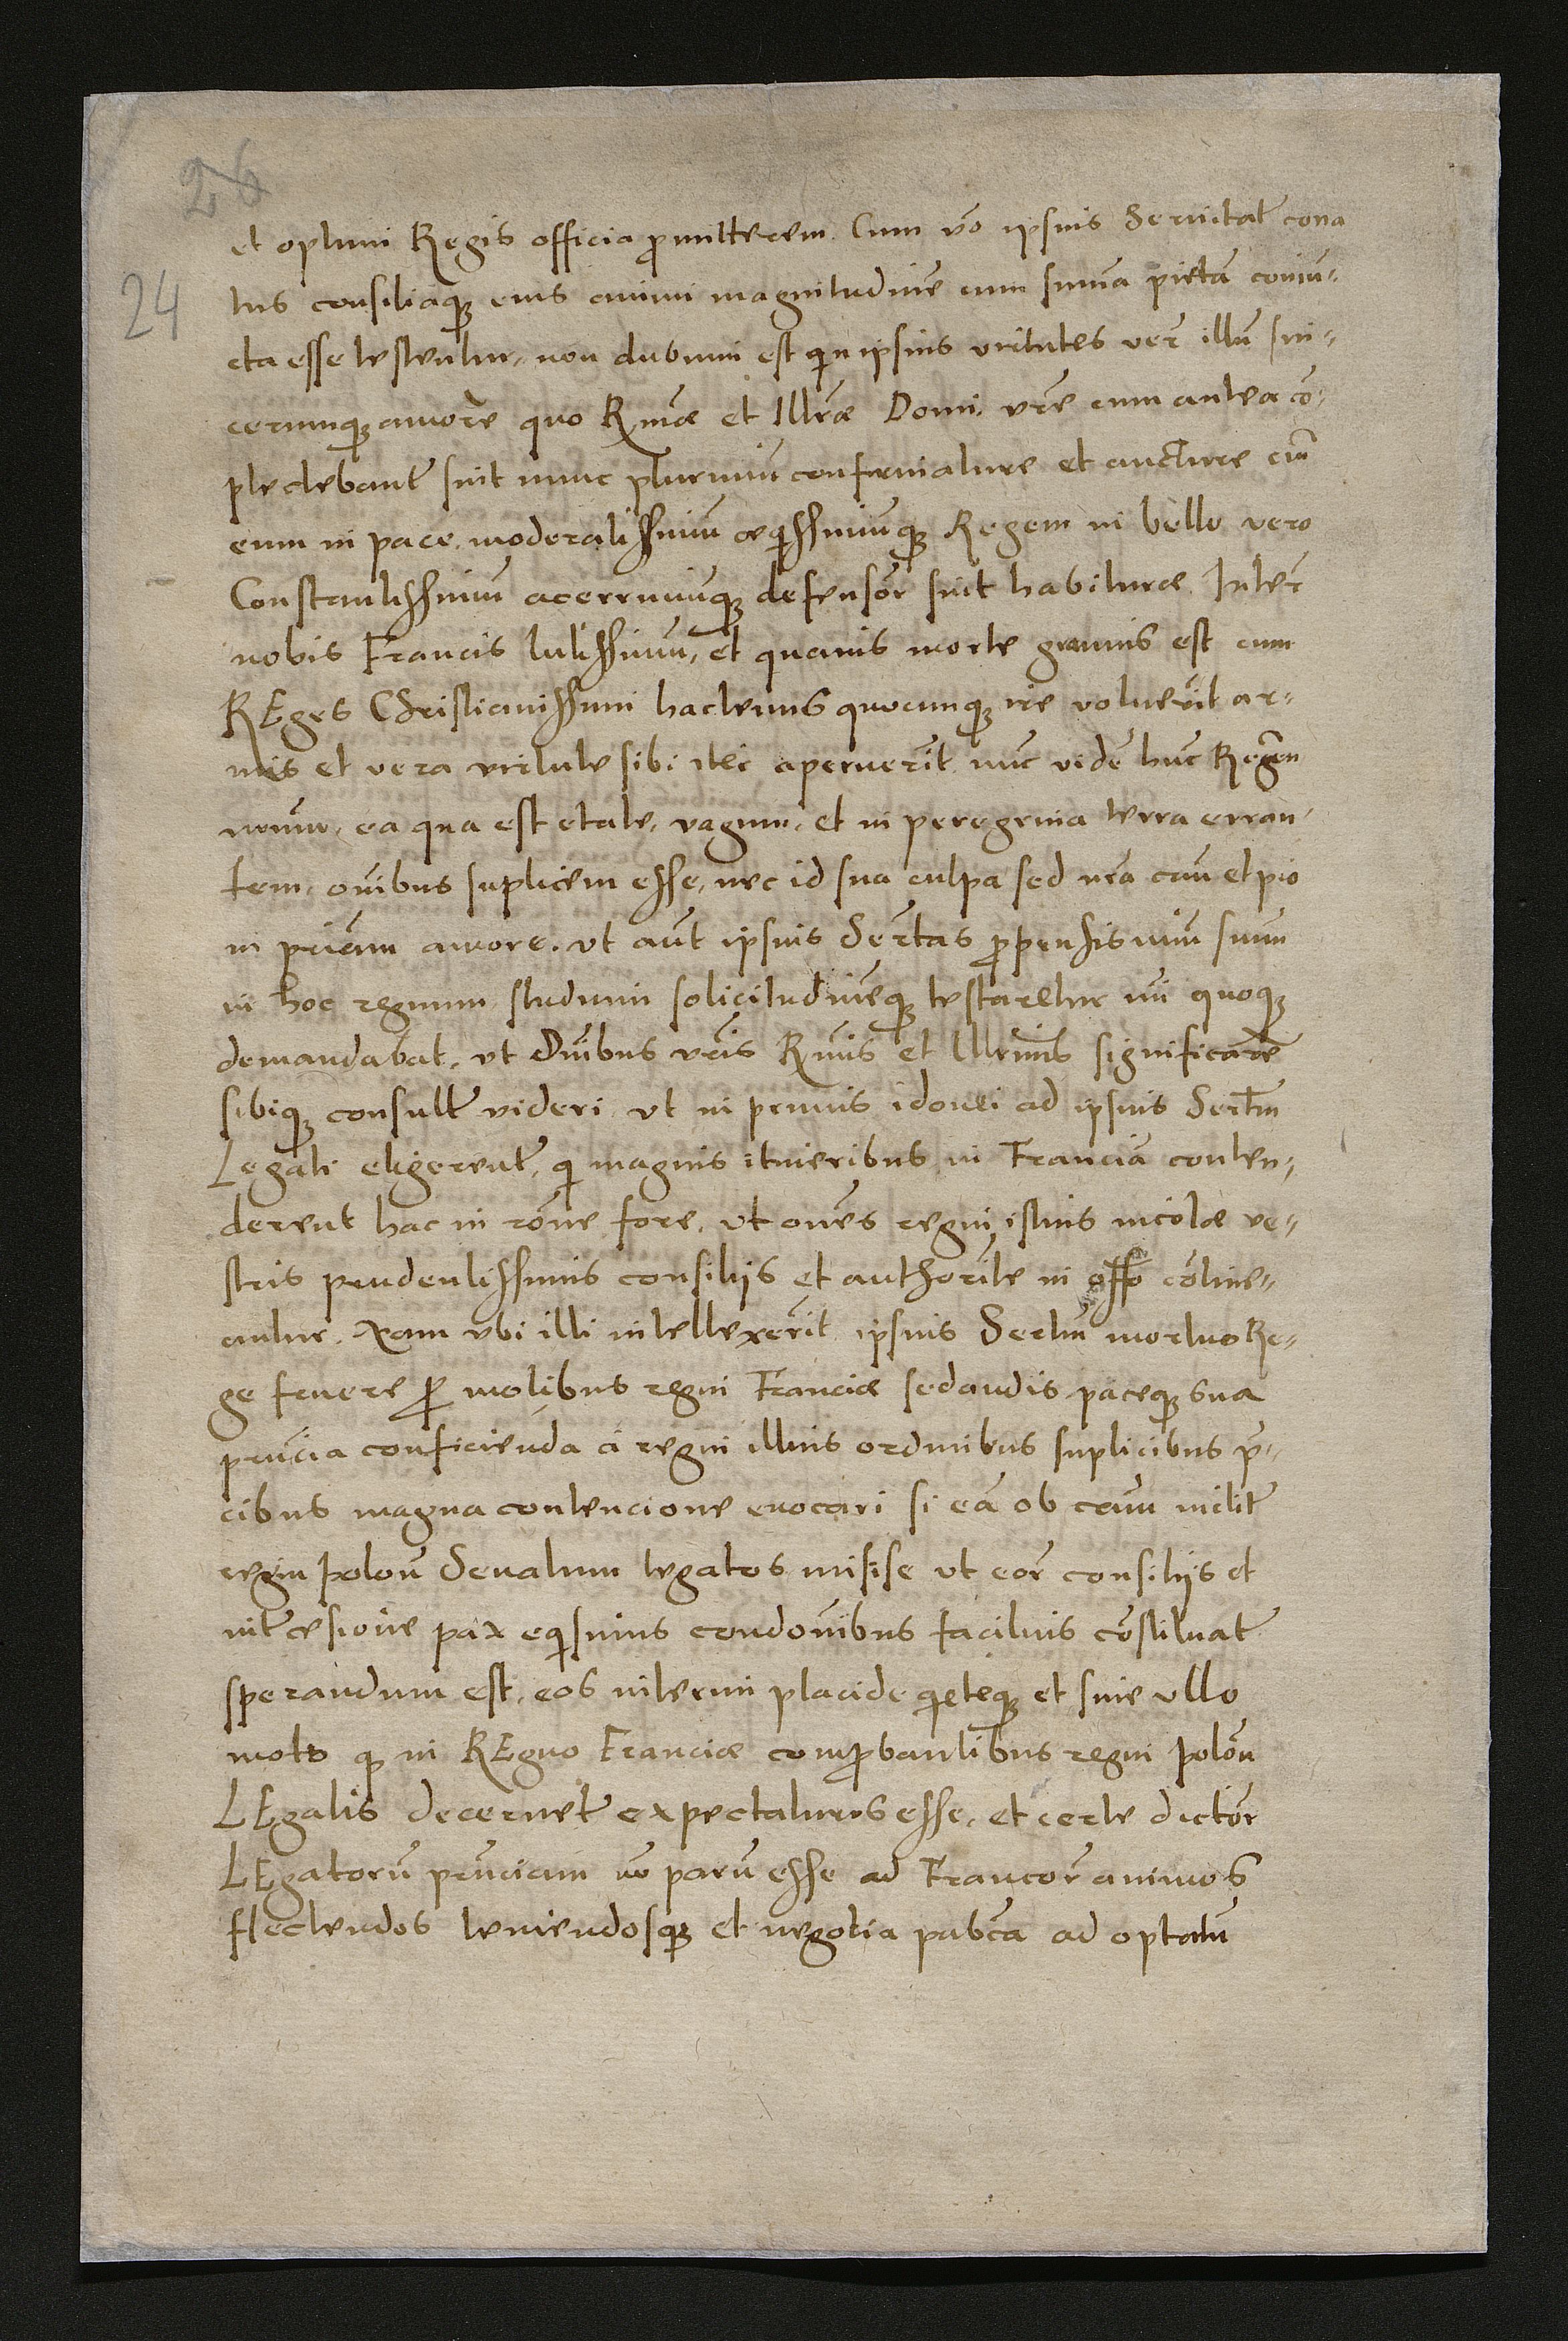 26
24
et optimi Regis officia ꝓmitterem. Cum vo͂ ipsius Serenitat͂ cona
tus consiliaqꝫ eius animi magnitudine͂ cum sum͂a pieta͂ coniu͂-
cta esse testentur, non dubium est qin ipsius virtutes ver͂ illu͂ sin-
cerumqꝫ amore͂ quo Rm͂æ et Illr͂æ Domi. vr͂e eum antea co͂-
plectebant͂ sint nunc plurimu͂ confirmature et aucture cu͂
eum in pace moderatissimu͂ æqissimu͂qꝫ Regem in bello vero
Constantissimu͂ acerrimu͂qꝫ defensor͂ sint habituræ. Inter͂
nobis Francis luctissimu͂, et quauis morte grauius est cum
REges Christianissimi hactenus quocunqꝫ ire voluerit͂ ar-
mis et vera virtute sibi iter aperuerit͂ nu͂c vide͂ hu͂c Rege͂m
nr͂um, ea qua est etate, vagum, et in peregrina terra erran-
tem, om͂ibus suplicem esse, nec id sua culpa sed nr͂a cau͂ et pio
in patr͂iam amore. vt aut͂ ipsius Ser͂tas ꝓpensissimu͂ suum
in hoc regnum studium solicitudine͂qꝫ testaretur mi͂ quoqꝫ
demandabat, vt Dni͂bus vr͂is Rmi͂s et Illr͂imis significare͂
sibiqꝫ consult͂ videri vt in primis idonei ad ipsius Sert͂m
Legati eligerent͂, qi magnis itineribus in Francia͂ conten-
derent hac in ro͂ne fore, vt om͂es regni istius incolæ ve-
stris prudentissimis consilijs et authorit͂e in offo͂ co͂tine-
antur. Nam vbi illi intellexerit͂ ipsius Sertm͂ mortuo Re-
ge fratre ꝓ motibus regni Franciæ sedandis paceqꝫ sua
prn͂cia conficienda a regni illius ordinibus suplicibus p͂-
cibus magna contencione euocari si ea͂ ob cau͂ inclit͂
regni Polon͂ Senatum legatos misise vt eor͂ consilijs et
int͂cesione pax eqissimis con͂donibus facilius co͂stituat͂
sperandum est, eos interim placide qieteqꝫ et sine vllo
motu qꝫ in REgno Franciæ comꝓbantibus regni Polon͂
LEgatis decernet͂ expectaturos esse, et certe dictor͂
LEgatoru͂ prn͂ciam no͂ paru͂ esse ad Francor͂ animos
flectendos leniendosqꝫ et negotia pabc͂a ad optatu͂